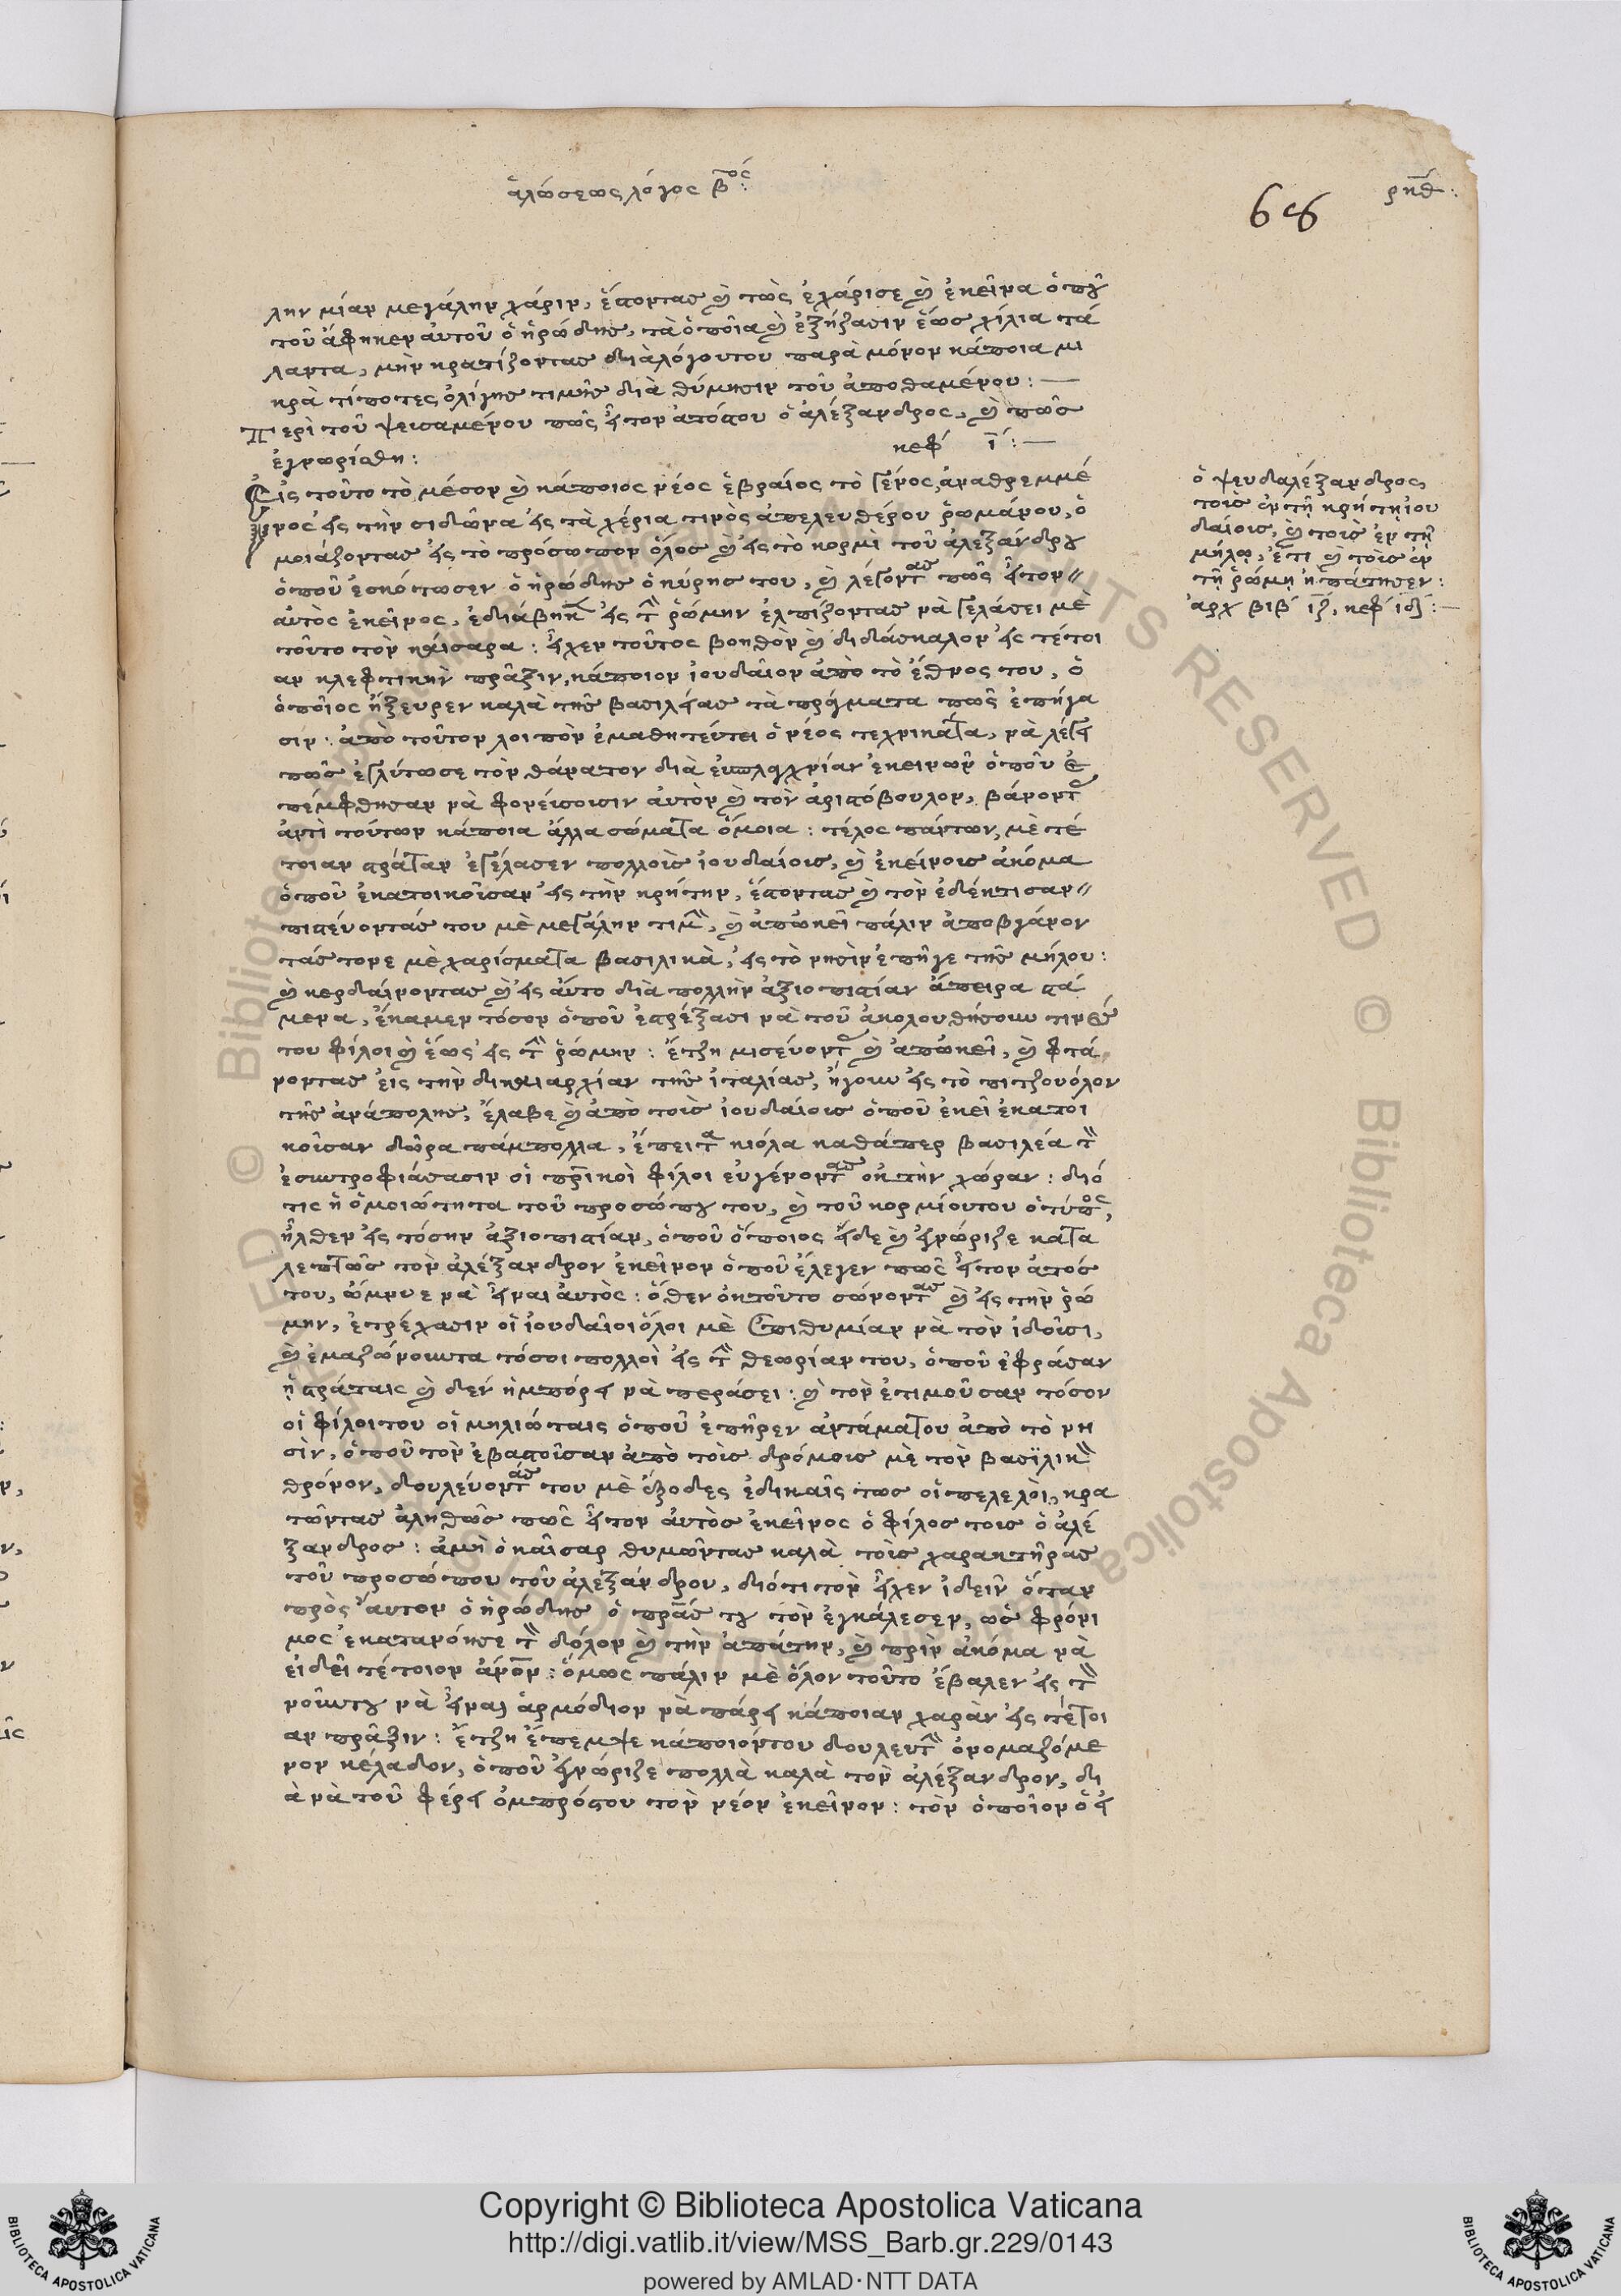 ἁλώσεως λόγος βος:
ρκθ:
66
λην μίαν μεγάλην χάριν, ἔστοντας καὶ τῶς ἐχάρισε καὶ ἐκεῖνα ὁποῦ
τοῦ ἄφηκεν αὐτοῦ ὁ ἡρώδης, τὰ ὁποῖα καὶ ἐξήζασιν ἕως χίλια τά
λαντα, μὴν κρατίζοντας διὰ λόγου του παρὰ μόνον κάποια μι
κρὰ τίποτες ὀλίγης τιμῆς διὰ θύμησιν τοῦ ἀποθαμένου:—
Περὶ τοῦ ψεισαμένου πῶς ἦτον ἀτόςου ὁ ἀλέξανδρος, καὶ πῶς
ἐγνωρίσθη: κεφ ι:—
Εἰς τοῦτο τὸ μέσον καὶ κάποιος νέος ἑβραίος τὸ γένος, ἀναθρεμμέ
νος εἰς τὴν σιδῶνα εἰς τὰ χέρια τινὸς ἀπελευθέρου ῥωμάνου, ὁ
μοιάζοντας εἰς τὸ πρόσωπον ὅλος καὶ εἰς τὸ κορμὶ τοῦ ἀλεξάνδρου
ὁποῦ ἐσκότωσεν ὁ ἡρώδης ὁ κύρης του, καὶ λέγοντας πῶς ἦτον
αὐτὸς ἐκεῖνος, ἐδιάβηκεν εἰς τὴν ῥώμην ἐλπίζοντας νὰ γελάσει μὲ
τοῦτο τὸν καίσαρα: εἶχεν τοῦτος βοηθὸν καὶ διδάσκαλον εἰς τέτοι
αν κλεφτικὴν πρᾶξιν, κάποιον ἰουδαῖον ἀπὸ τὸ ἔθνος του, ὁ
ὁποῖος ἤξευρεν καλὰ τῆς βασιλείας τὰ πράγματα πῶς ἐπήγα
σιν: ἀπὸ τοῦτον λοιπὸν ἐμαθητέυτει ὁ νέος τεχνικάτα, νὰ λέγει
πῶς ἐγλύτωσε τὸν θάνατον διὰ ἐυσπλαχνίαν ἐκεινῶν ὁποῦ ἐ
πέμφθησαν νὰ φονέισοισιν αὐτὸν καὶ τὸν ἀριστόβουλον, βάνοντας
ἀντὶ τούτων κάποια ἄλλα σώματα ὅμοια: τέλος πάντων, μὲ τέ
τοιαν στράταν ἐγέλασεν πολλοὶς ἰουδαίοις, καὶ ἐκείνοις ἀκόμα
ὁποῦ ἐκατοικοῖσαν εἰς τὴν κρήτην, ἔστοντας καὶ τὸν ἐδέκτισαν
πιστέυοντάς του μὲ μεγάλην τιμὴν, καὶ ἀπῶκεῖ πάλιν ἀποβγάνον
τάς τονε μὲ χαρίσματα βασιλικὰ, εἰς τὸ νησὶν ἐπῆγε τῆς μήλου:
καὶ κερδαίνοντας καὶ εἰς ἀύτο διὰ πολλὴν ἀξιοπιστίαν ἄπειρα στά
μενα, ἔκαμεν τόσον ὁποῦ ἐστρέξασι νὰ τοῦ ἀκολουθήσουν τινὲς
του φίλοι καὶ ἕως εἰς τὴν ῥώμην: ἔτζη μισέυοντας καὶ ἀπῶκεῖ, καὶ φτά
νοντας εἰς τὴν δικαιαρχίαν τῆς ἰταλίας, ἤγουν εἰς τὸ πιτζουόλον
τῆς ἀνάπολης, ἔλαβε καὶ ἀπὸ τοὶς ἰουδαίοις ὁποῦ ἐκεῖ ἐκατοι
κοῖσαν δῶρα πάμπολλα, ἔπειτα κιόλα καθάπερ βασιλέα τὸν
ἐσυντροφιάσασιν οἱ πρικοὶ φίλοι ευγένοντας ὀκ τὴν χώραν: διό
τις ἡ ὁμοιώτητα τοῦ προσώπου του, καὶ τοῦ κορμίου του ὁ τύπος,
ἦλθεν εἰς τόσην ἀξιοπιστίαν, ὁποῦ ὅποιος εἶδε καὶ ἐγνώριζε κατα
λεπτῶς τὸν ἀλέξανδρον ἐκεῖνον ὁποῦ ἔλεγεν πῶς ἦτον ἀτός
του, ὤμνυε νὰ εἶναι ἀυτὸς: ὅθεν ὀκ τοῦτο σώνοντας καὶ εἰς τὴν ῥώ
μην, ἐτρέχασιν οἱ ἰουδαῖοι ὅλοι μὲ ἐπιθυμίαν νὰ τὸν ἰδοῖσι,
καὶ ἐμαζώνουντα τόσοι πολλοὶ εἰς τὴν θεωρίαν του, ὁποῦ ἐφράσαν
ἡ στράταις καὶ δεν ἠμπόρει νὰ περάσει: καὶ τὸν ἐτιμοῦσαν τόσον
οἱ φίλοι του οἱ μηλιώταις ὁποῦ ἐπῆρεν ἀντάματου ἀπὸ τὸ νη
σὶν, ὁποῦ τὸν ἐβαστοῖσαν ἀπὸ τοὶς δρόμοις μὲ τὸν βασϊλικὸν
θρόνον, δουλέυοντάς του μὲ ἔξοδες ἐδικαῖς τως οἱ πελελὸι, κρα
τῶντας ἀληθῶς πῶς ἦτον ἀυτὸς ἐκεῖνος ὁ φίλος τοις ὁ ἀλέ
ξανδρος: ἀμὴ ὁ καῖσαρ θυμῶντας καλὰ τοὶς χαρακτῆρας
τοῦ προσώπου τοῦ ἀλεξάνδρου, διότι τὸν εἶχεν ἰδεῖν ὅταν
πρὸς αυτον ὁ ἡρώδης ὁ πρας του τὸν ἐγκάλεσεν, ὡς φρόνι
μος ἐκατανόησε τὸν δόλον καὶ τὴν ἀπάτην, καὶ πρὶν ἀκόμα νὰ
ειδεῖ τέτοιον ἀνον: ὅμως πάλιν μὲ ὅλον τοῦτο ἔβαλεν εἰς τὸν
νοῦν του νὰ εἶναι ἁρμόδιον νὰ πάρει κάποιαν χαρὰν εἰς τέτοι
αν πρᾶξιν: ἔτζη ἔπεμψε κάποιόν του δουλευτὴν ὀνομαζόμε
νον κέλαδον, ὁποῦ ἐγνώριζε πολλὰ καλὰ τὸν ἀλέξανδρον, δι
ὰ νὰ τοῦ φέρει ὀμπρόςτου τὸν νέον ἐκεῖνον: τὸν ὁποῖον ὁ
ὁ ψευδαλέξανδρος,
τοὶς ἐν τῇ κρήτῃ ἰου
δαίοις, καὶ τοὶς ἐν τῇ
μήλῳ, ἔτι καὶ τοὶς ἐν
τῇ ῥώμῃ ἠπάτησεν:
ἀρχ βιβ ιζ, κεφ ιδ:—
Copyright © Biblioteca Apostolica Vaticana
http://digi.vatlib.it/view/MSS_Barb.gr.229/0143
powered by AMLAD·NTT DATA
BIBLIOTECA APOSTOLICA VATICANA
BIBLIOTECA APOSTOLICA VATICANA